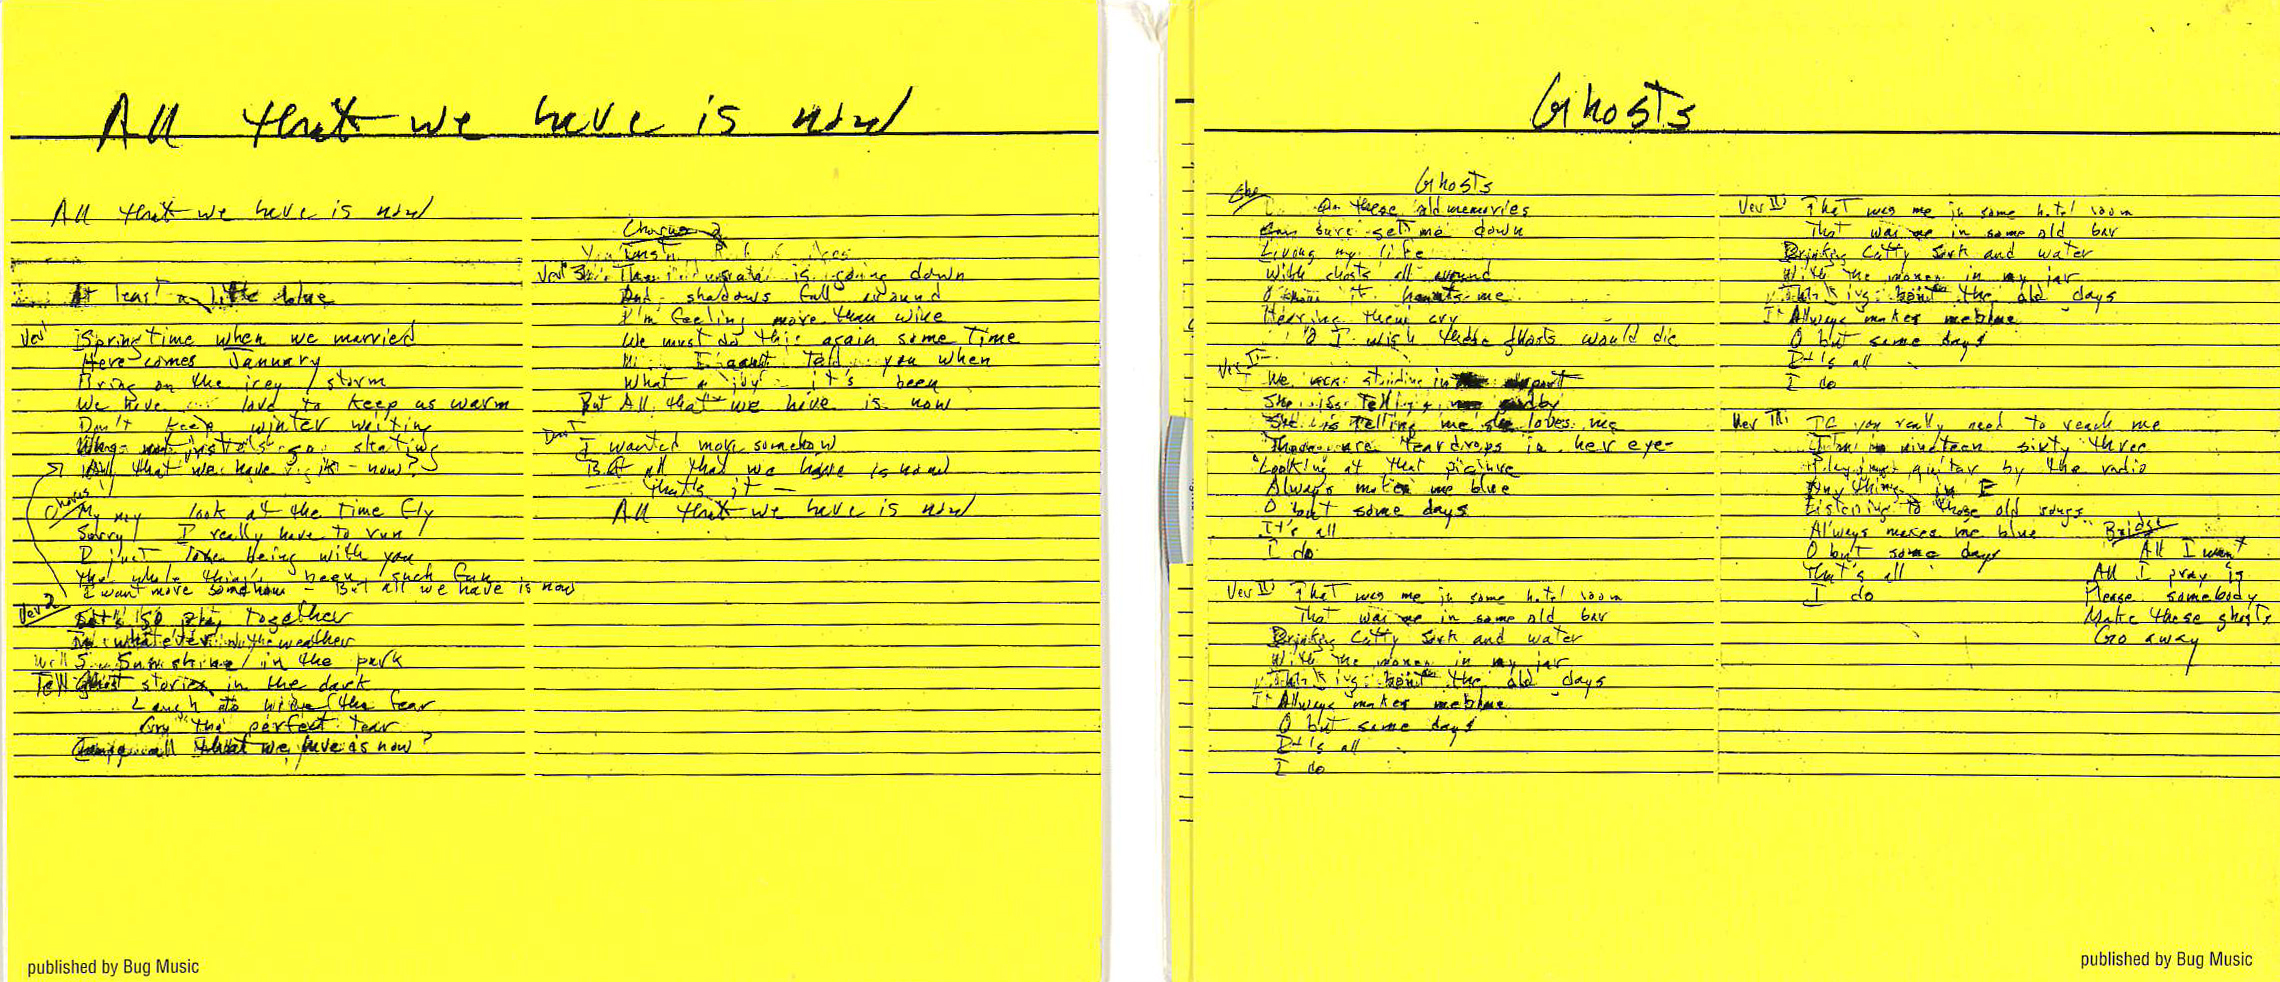 All that we have is now
All that we have is now
At least a little blue
Ver 1 Springtime when we married
Here comes January
Bring on the icey storm
We have love to keep us warm
Don't keep winter waiting
go skating
All that we have is now?
Chorus My my look at the time fly
Sorry I really have to run
I just love being with you
The whole thing's been such fun
I want more somehow - But all we have is now
Ver 2 together
whatever the weather
Sunshine in the park
Tell ghost stories in the dark
Laugh to hide the fear
Cry the perfect tear
all that we have is now?
Chorus 2
Ver 3 The is going down
And shadows fall around
I'm feeling more than wine
We must do this again some time
I can't tell you when
What a joy it's been
But All that we have is now
I wanted more somehow
But all that we have is now
that's it —
All that we have is now
published by Bug Music
Ghosts
Ghosts
Cho On these old memories
Can sure get me down
Living my life
With ghosts all around
it haunts me
Hearing them cry
O I wish these ghosts would die
Ver I We were standing in airport
She is telling me
She is telling me she loves me
There are teardrops in her eye
Looking at that picture
Always makes me blue
O but some days
It's all
I do
Ver II That was me in some hotel room
That was me in some old bar
Drinking Cutty Sark and water
With the money in my jar
the old days
It Always makes me blue
O but some days
It's all
I do
Ver II That was me in some hotel room
That was me in some old bar
Drinking Cutty Sark and water
With the money in my jar
the old days
It Always makes me blue
O but some days
It's all
I do
Ver III If you really need to reach me
I'm in nineteen sixty three
Playing guitar by the radio
Any thing in E
Listening to those old songs
Always makes me blue
O but some days
That's all
I do
Bridge
All I want
All I pray is
Please somebody
Make these ghosts
Go away
published by Bug Music